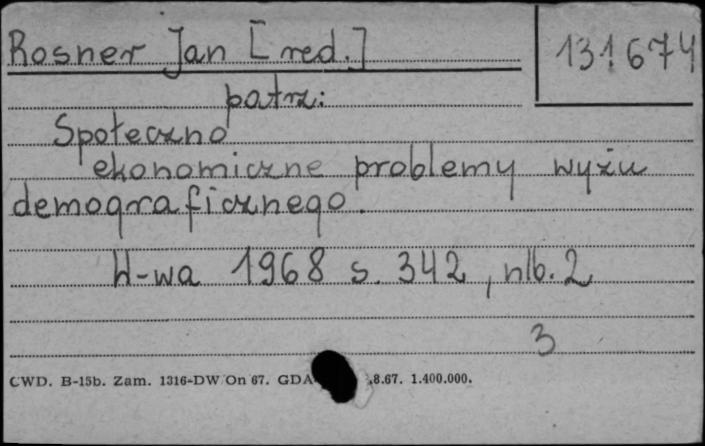 Rosner Jan [red.]
131674
patrz:
Społeczno
ekonomiczne problemy wyżu
demograficznego.
W-wa 1968 s. 342, nlb. 2
3
CWD. B-15b. Zam. 1316-DW/On 67. GDA .8.67. 1.400.000.